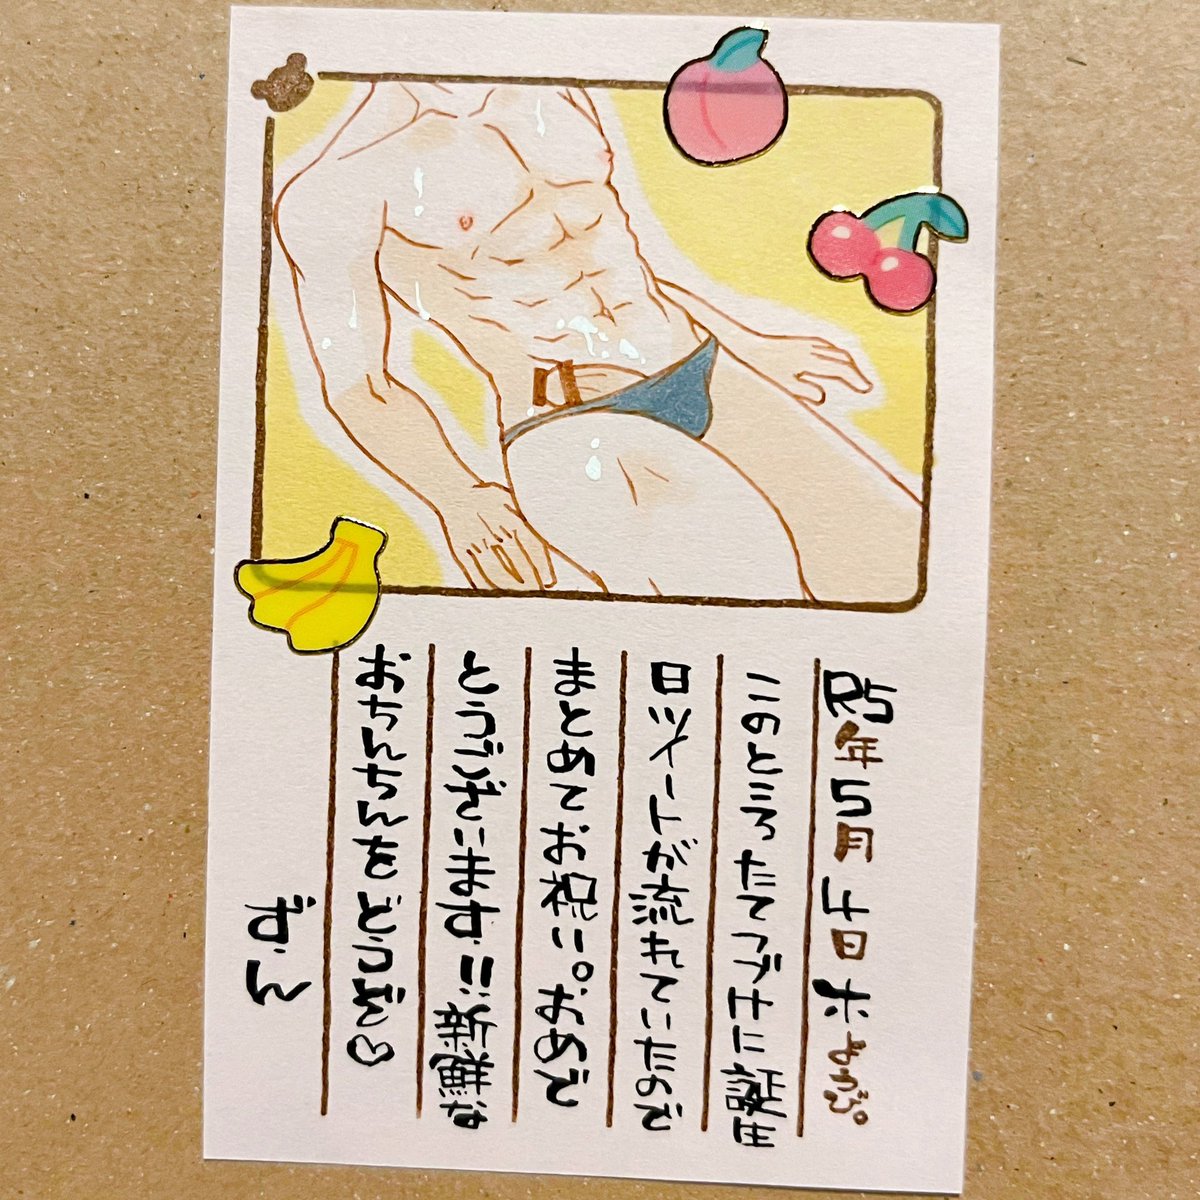 R5年5月4日木ようび。
このところたてつづけに誕生
日ツイートが流れていたので
まとめてお祝い。おめで
とうございます!!新鮮な
おちんちんをどうぞ♡
ず.ん